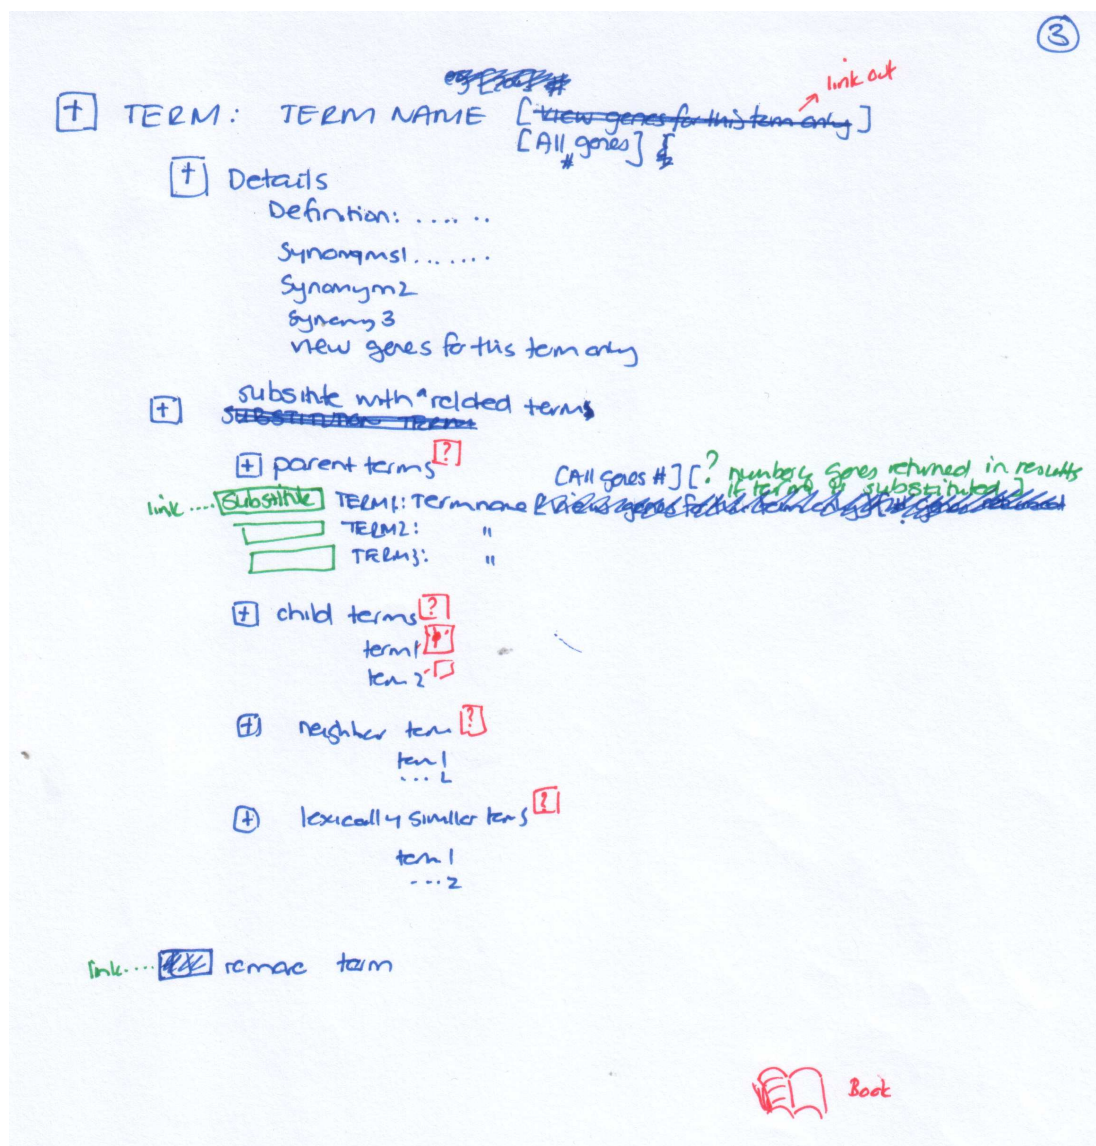 3
link out
+ TERM: TERM NAME [view genes for this term only]
[All genes] [
#
+ Details
Definition: ......
Synonyms1.......
Synomym2
Synomy 3
view genes for this term only
+ subsitute with ^ related terms
SUBSTITUTION TERMS
+ parent terms ?
[All genes #] [? number of genes returned in results
if term is substituted]
link .... Substitute TERM1: Term name
TERM2: "
TERM3: "
+ child terms ?
term1
term 2
+ neighbor term ?
term 1
.... 2
+ lexically similar terms ?
term 1
... 2
link .... remove term
Book